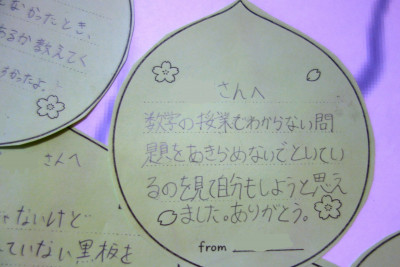 なかったとき、
あるか教えてく
かったよ。
さんへ
数学の授業でわからない問
題をあきらめないでといてい
るのを見て自分もしようと思え
ました。ありがとう。
from
さんへ
ゃないけど
ていない黒板を